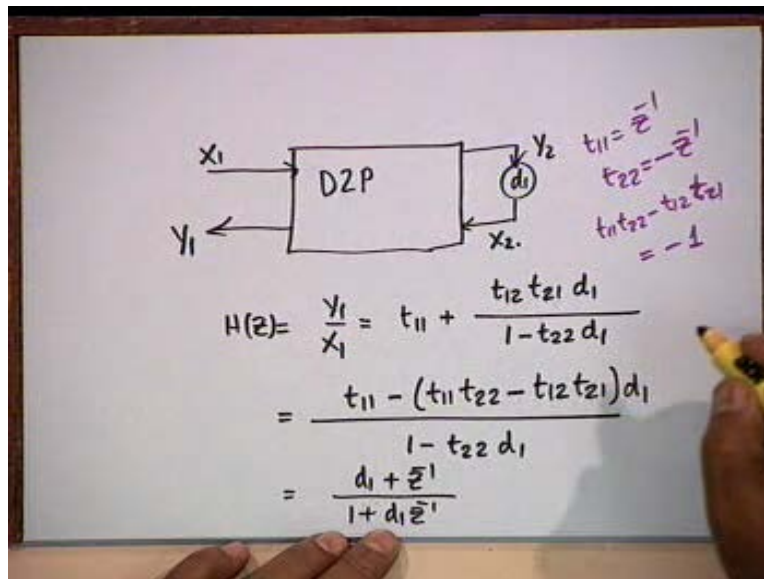 X₁
D2P
Y₂
d₁
Y₁
X₂.
t₁₁ = z̄¹
t₂₂ = -z̄¹
t₁₁t₂₂ - t₁₂t₂₁
= -1
H(z) = Y₁/X₁ = t₁₁ + t₁₂ t₂₁ d₁ / 1 - t₂₂ d₁
= t₁₁ - (t₁₁ t₂₂ - t₁₂ t₂₁) d₁ / 1 - t₂₂ d₁
= d₁ + z̄¹ / 1 + d₁ z̄¹